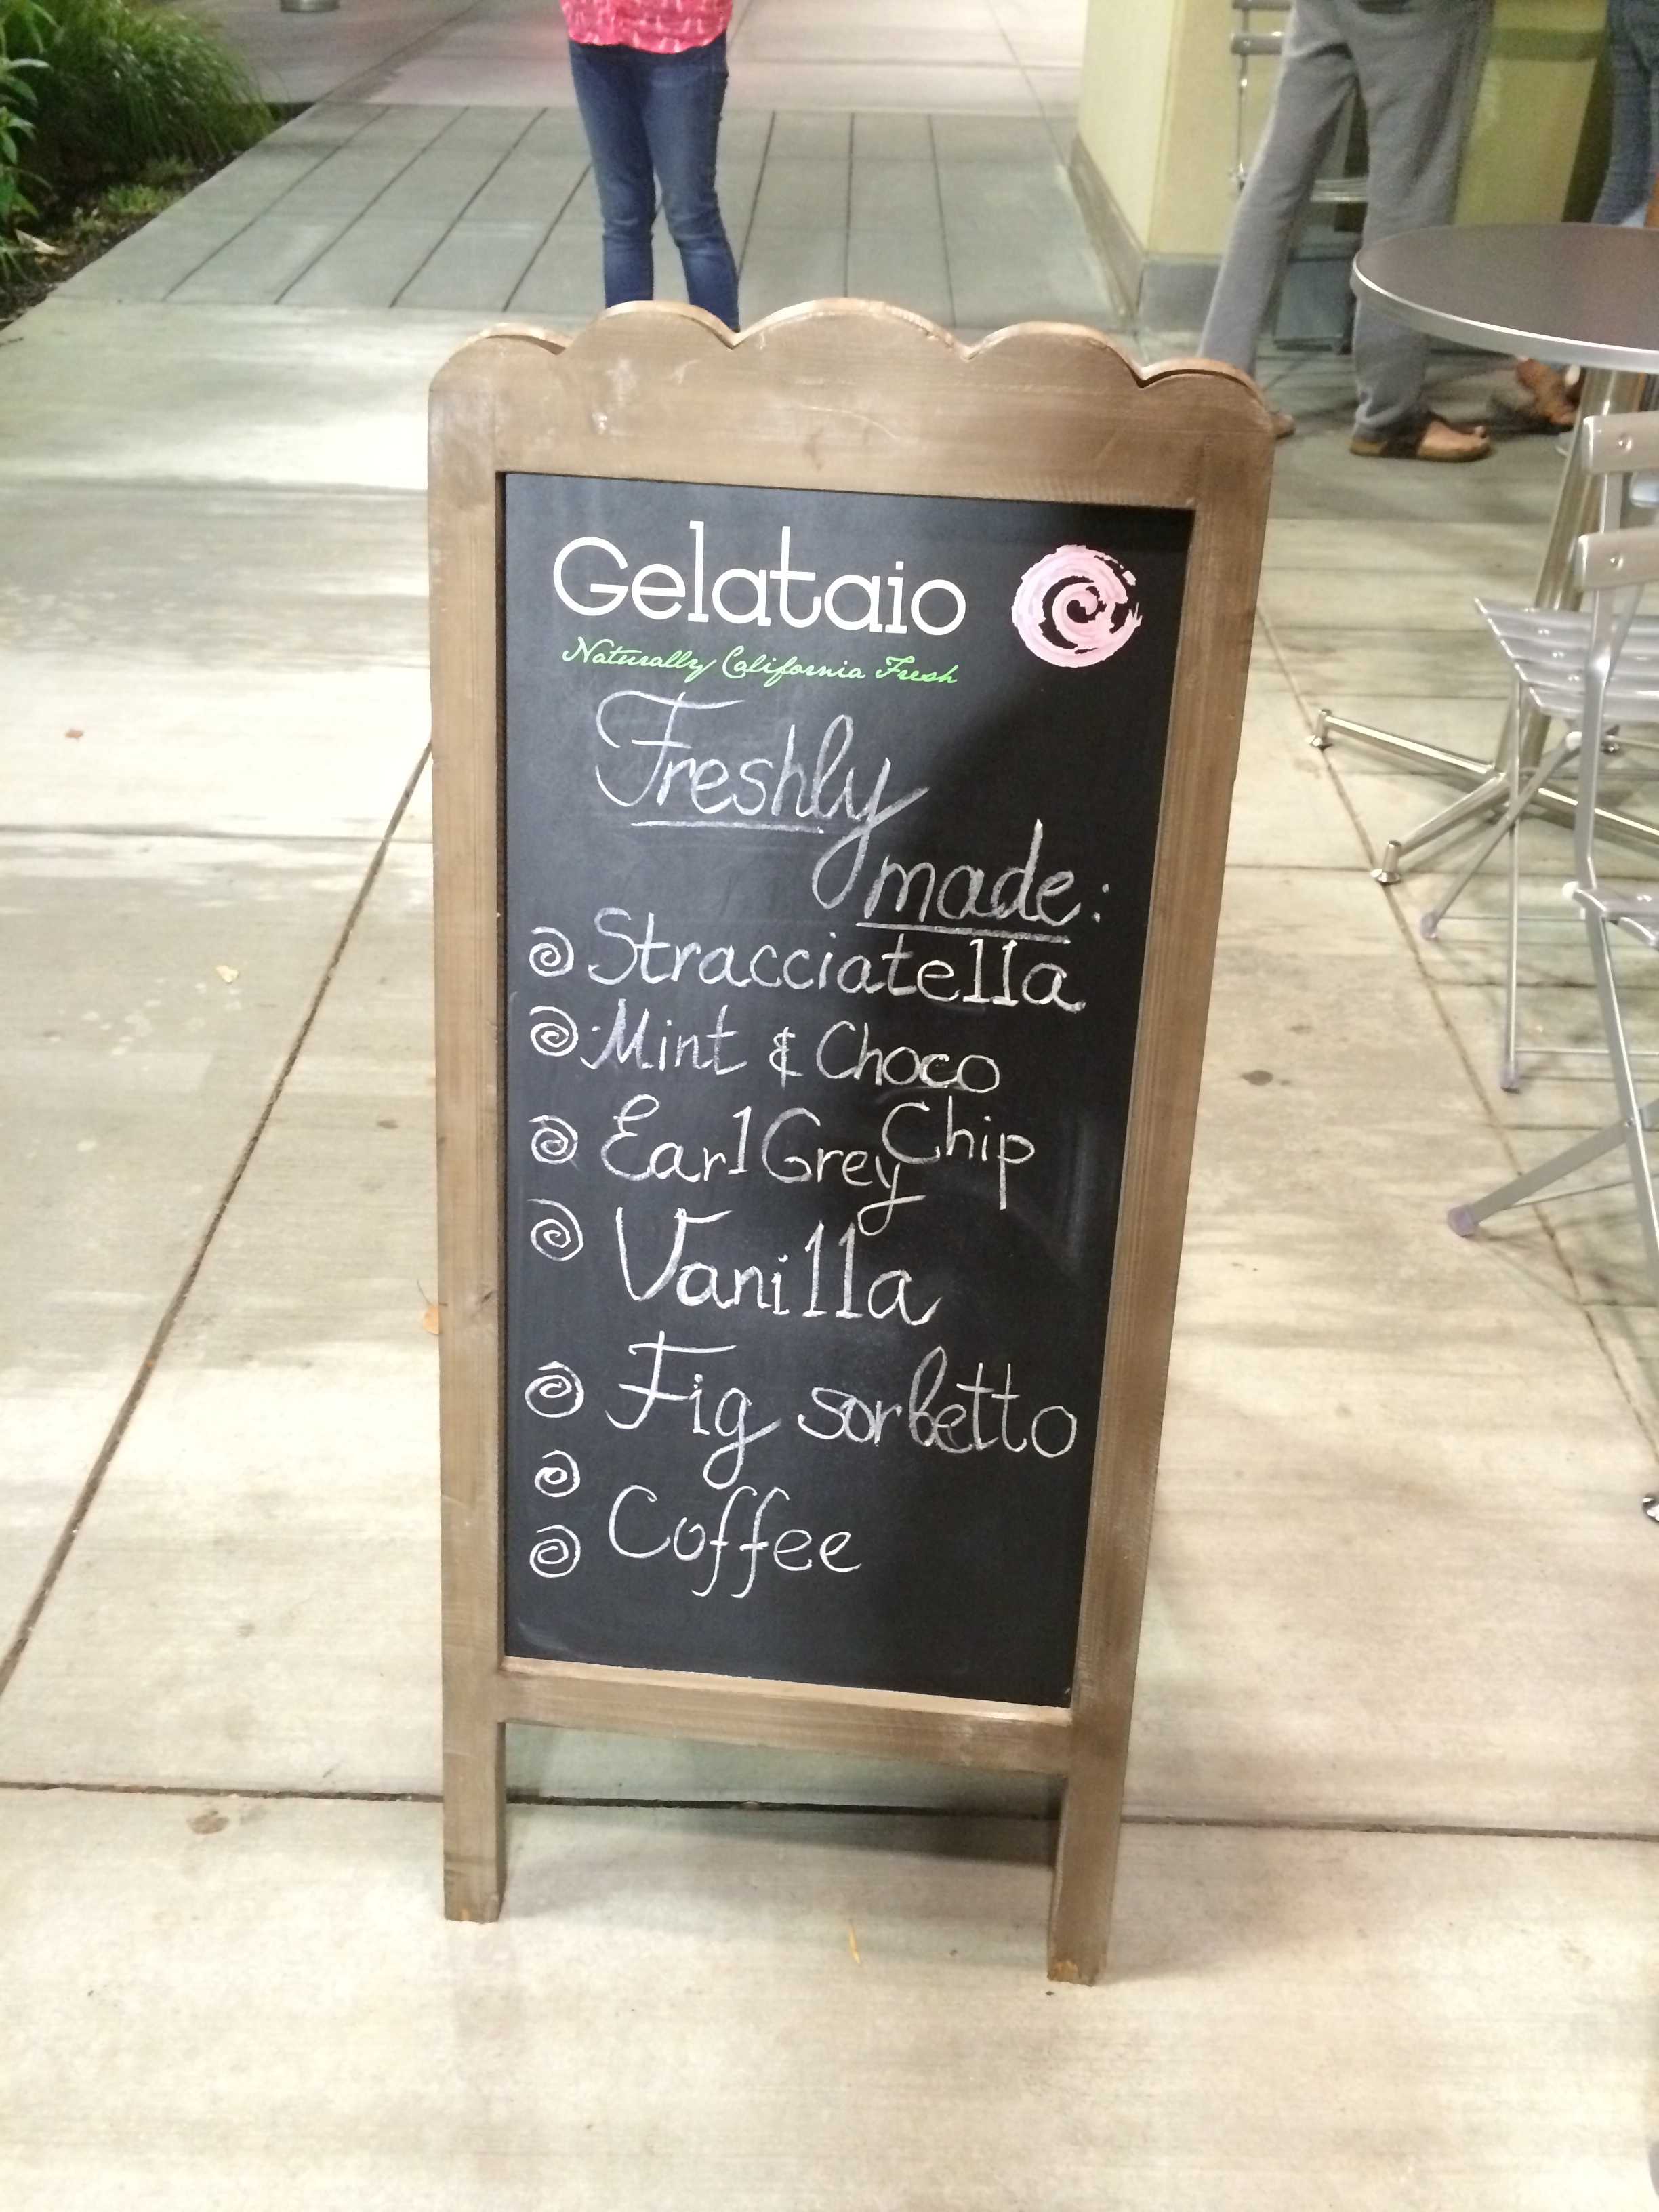 Gelataio
Naturally California Fresh
Freshly
made:
Stracciatella
Mint & Choco
Chip
Earl Grey
Vanilla
Fig sorbetto
Coffee